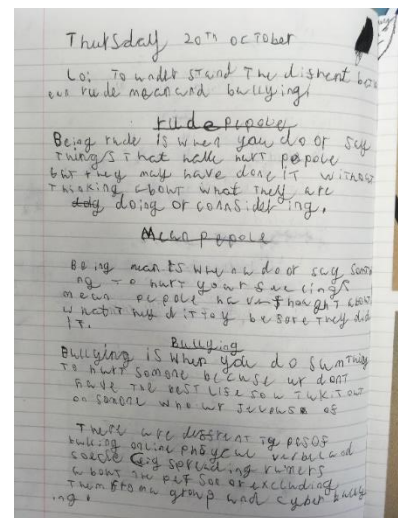 Thursday 20Th OCTOber
Lo: To under stand The difrent bet
een rude mean and bullying
rude pepole
Being rude is when you do or say
Things That have hurt pepole
but They may have done iT withouT
Thinking about what They are
doing or connsider ing.
Mean pepole
Being mean is when do or say som
ng To hurt your feelings
mean pepole have thought about
whaT They did before They did
iT.
Bullying
Bullying is when you do sumThing
To hurT somone because ur donT
have The besT life so u Tak iT ouT
on somone who ur jelouse of
There are diffrenT Typesof
bulling online phsycal verbel and
spreading rumers
abouT The person or excluding
Them from a group and cyber bully
ing.